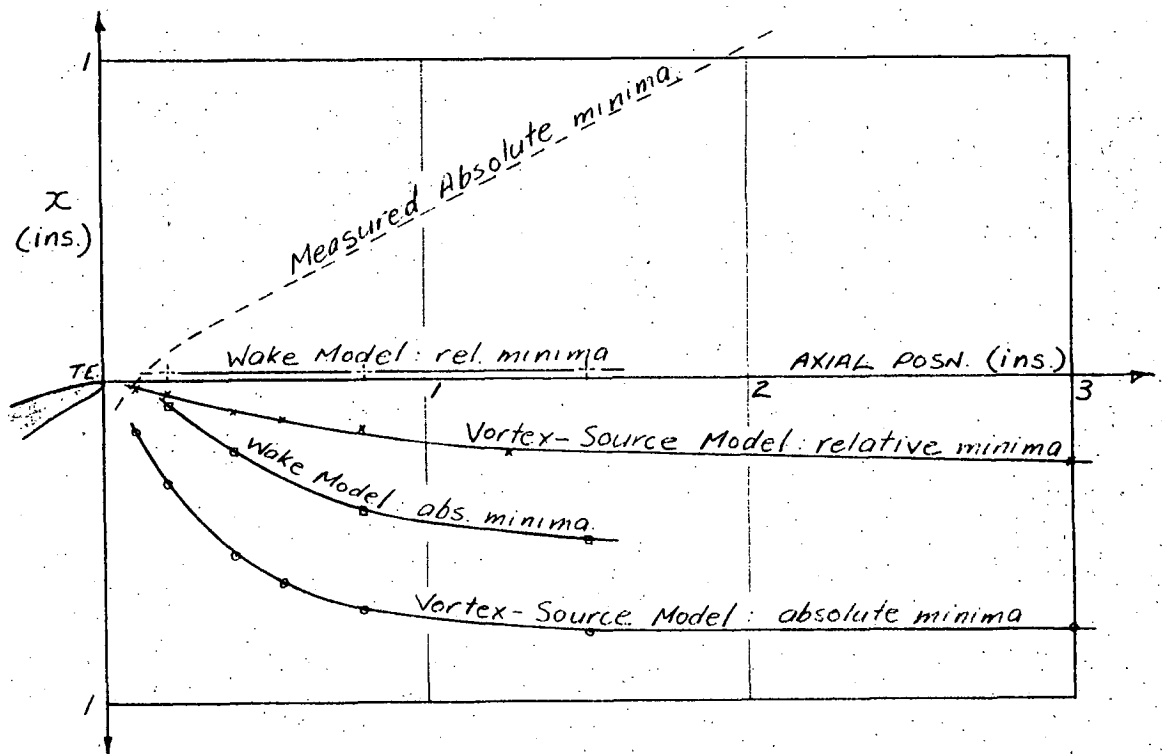 1
Measured Absolute minima.
x
(ins.)
Wake Model : rel. minima
AXIAL POSN. (ins.)
TE
1
1
2
3
Vortex-Source Model : relative minima
Wake Model : abs. minima.
Vortex-Source Model : absolute minima
1